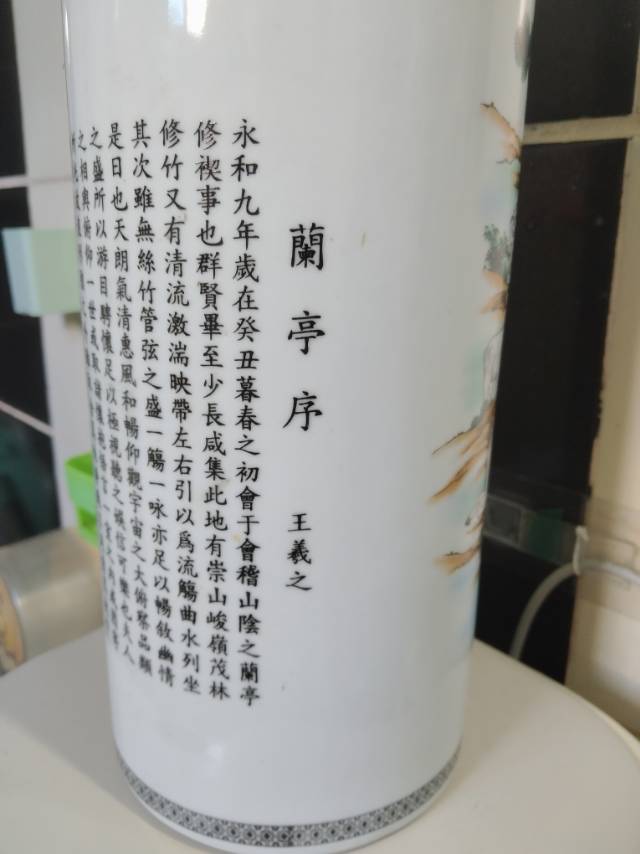 蘭亭序
王羲之
永和九年歲在癸丑暮春之初會于會稽山陰之蘭亭
修禊事也群賢畢至少長咸集此地有崇山峻嶺茂林
修竹又有清流激湍映帶左右引以爲流觴曲水列坐
其次雖無絲竹管弦之盛一觴一咏亦足以暢敘幽情
是日也天朗氣清惠風和暢仰觀宇宙之大俯察品類
之盛所以游目騁懷足以極視聽之娛信可樂也夫人
之相與俯仰一世或取諸懷抱悟言一室之內